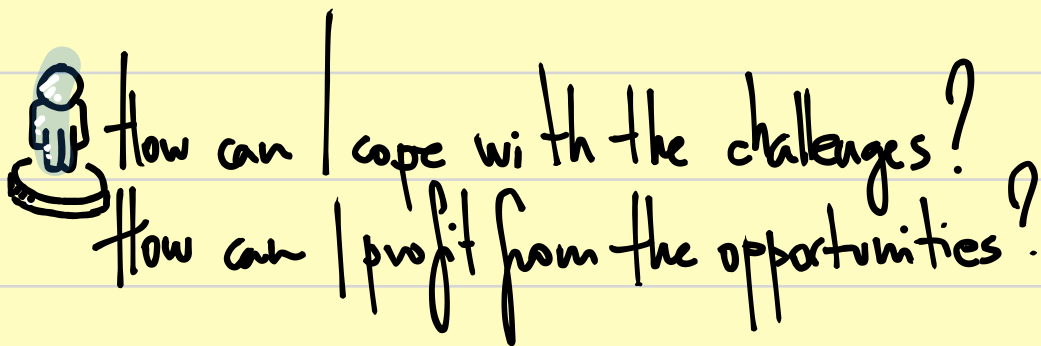 How can I cope with the challenges?
How can I profit from the opportunities?